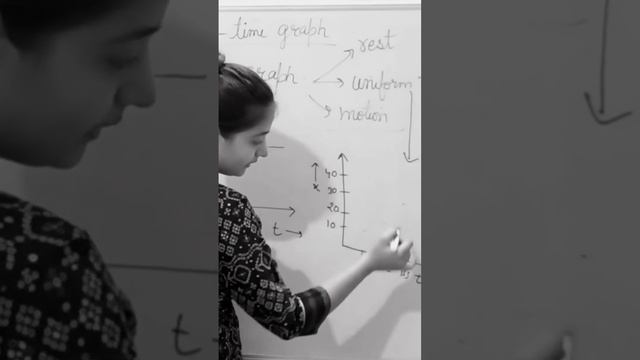 - time graph
rest
graph
uniform
motion
40
x 30
20
10
t
t